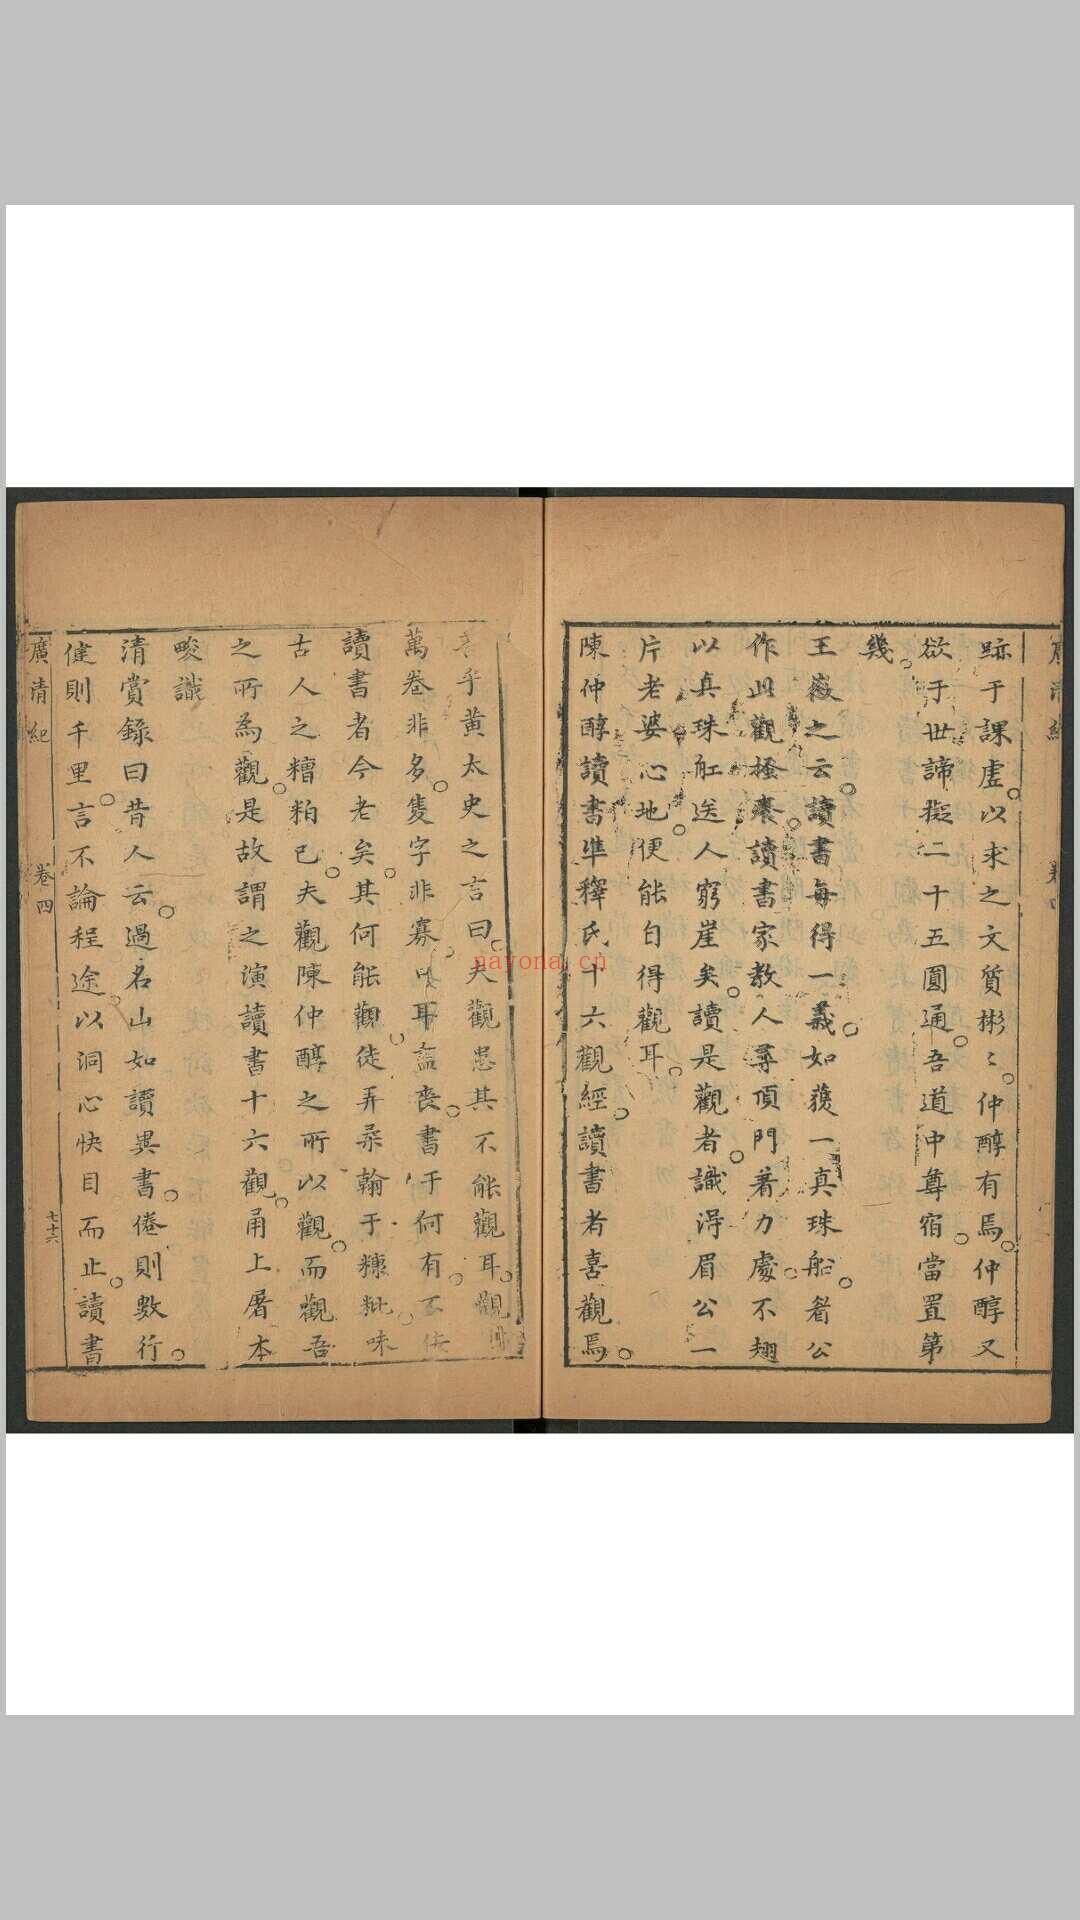 跡于課虛以求之文質彬〻仲醇有焉仲醇又
欲于世諦擬二十五圓通吾道中尊宿當置第
幾
王薇之云讀書每得一義如獲一真珠船着公
作此觀搔癢讀書家教人尋頂門著力處不翅
以真珠舡送人窮崖矣讀是觀者識淂眉公一
片老婆心地便能自得觀耳
陳仲醇讀書準釋氏十六觀經讀書者喜觀焉
乎黄太史之言曰夫觀患其不能觀耳觀
萬卷非多隻字非寡耳盖喪書于何有
讀書者今老矣其何能觀徒弄柔翰于糠粃味
古人之糟粕已夫觀陳仲醇之所以觀而觀吾
之所為觀是故謂之演讀書十六觀甬上屠本
畯識
清賞錄曰昔人云過名山如讀異書倦則數行
健則千里言不論程途以洞心快目而止讀書
廣清紀
卷四
七十六
nayona.cn